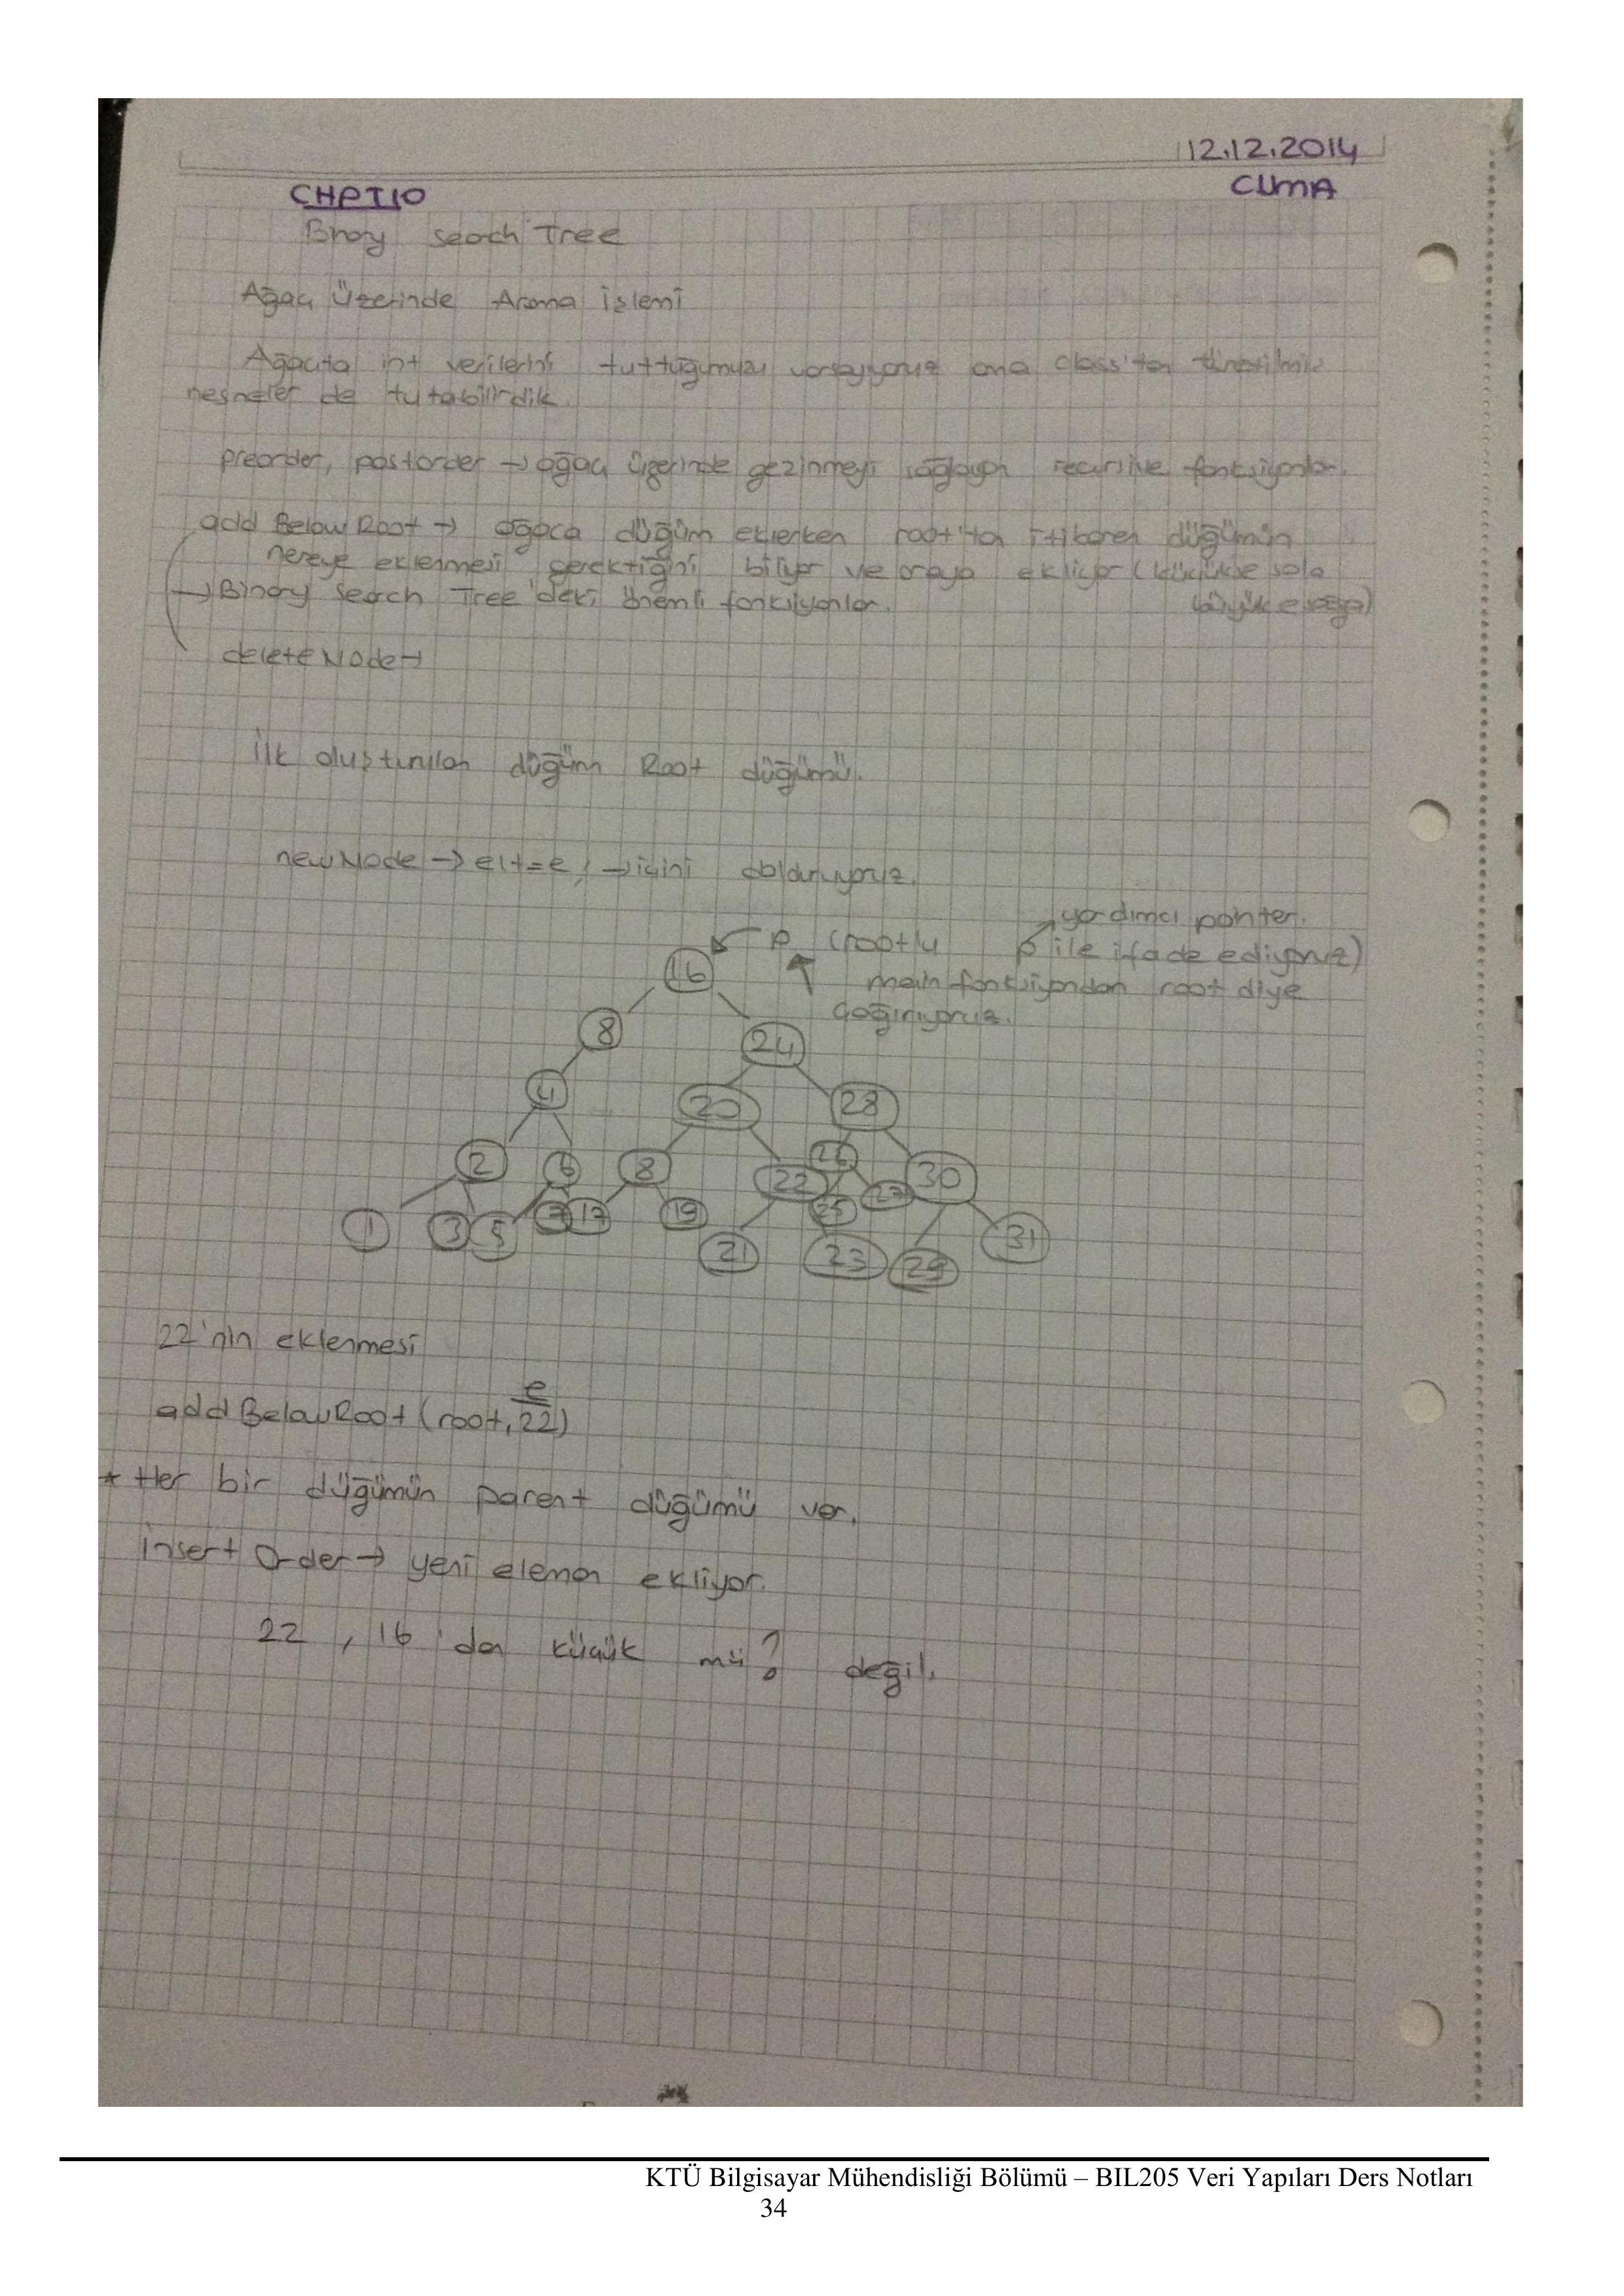 12.12.2014
CUMA
CHPT10
Binary Search Tree
Ağaç Üzerinde Arama İşlemi
Ağaçta int verilerini tuttuğumuzu varsayıyoruz ama class'tan türetilmiş
nesneler de tutabilirdik.
preorder, postorder → ağaç üzerinde gezinmeyi sağlayan recursive fonksiyonlar.
add BelowRoot → ağaca düğüm eklerken root'tan itibaren düğümün
nereye eklenmesi gerektiğini biliyor ve oraya ekliyor (küçükse sola
→ Binary Search Tree'deki önemli fonksiyonlar. büyükse sağa)
deleteNode →
İlk oluşturulan düğüm Root düğümü.
newNode → elt = e; → içini dolduruyoruz.
yardımcı pointer.
p (root'u p ile ifade ediyoruz)
16 main fonksiyondan root diye
çağırıyoruz.
8 24
4 20 28
2 6 8 22 26 30
1 3 5 7 17 19 25 27
21 23 29 31
22'nin eklenmesi
e
add BelowRoot (root, 22)
* Her bir düğümün parent düğümü var.
insert Order → yeni eleman ekliyor.
22, 16'dan küçük mü? değil.
KTÜ Bilgisayar Mühendisliği Bölümü – BIL205 Veri Yapıları Ders Notları
34